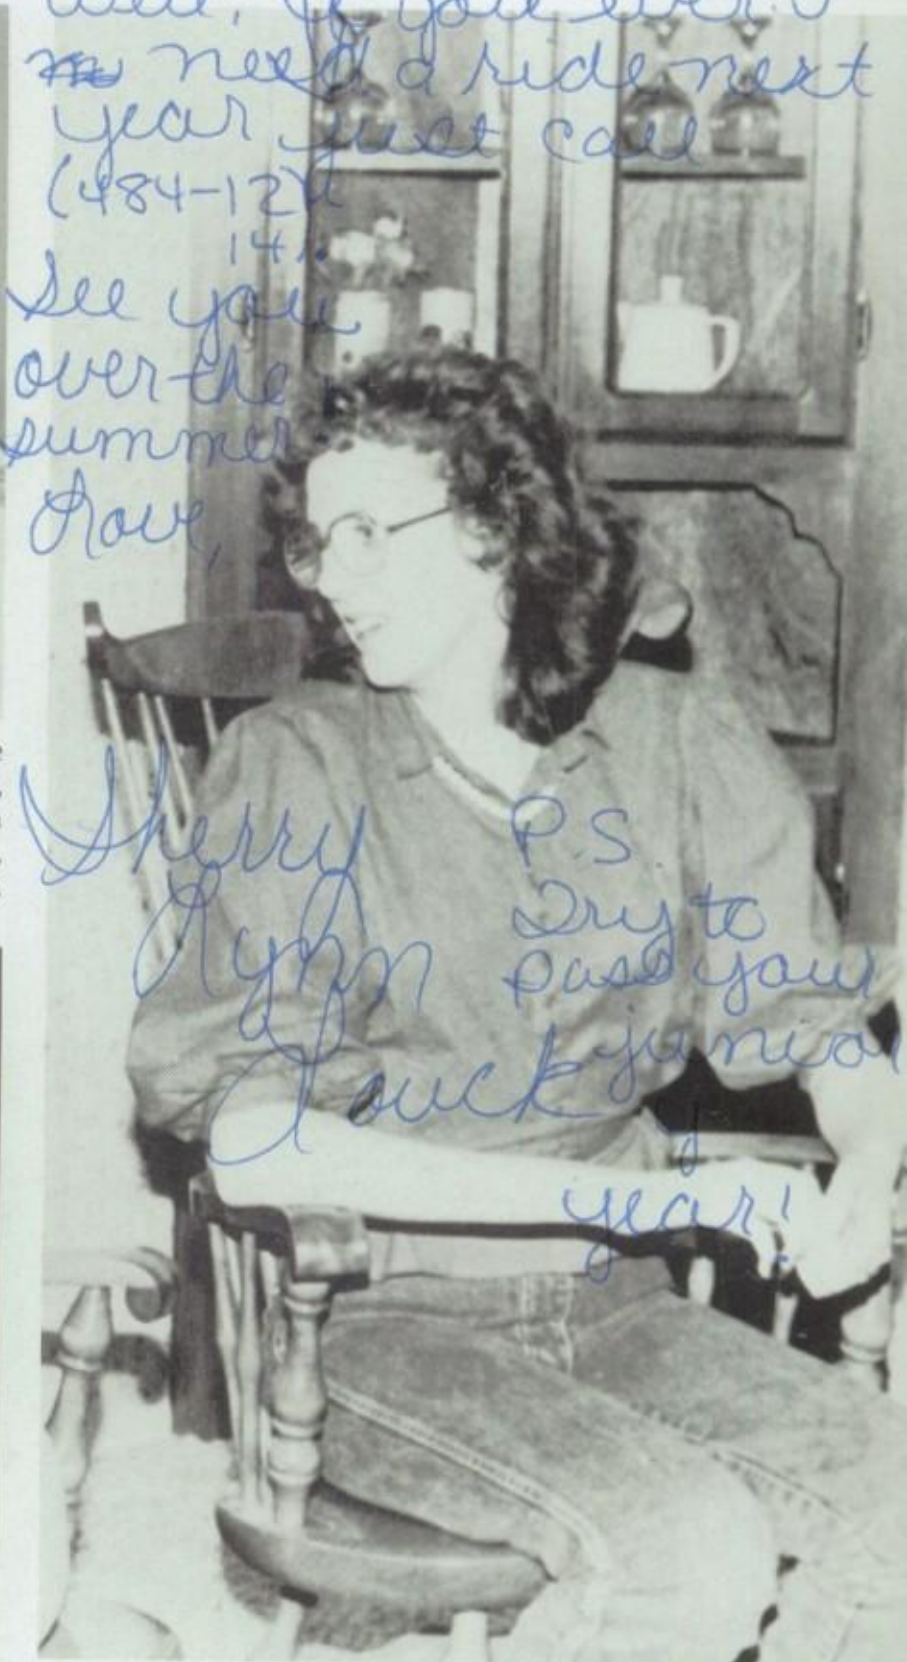 well, if you ever
need a ride next
year just call
(484-12
14).
See you
over the
summer
Love,
Sherry
Lynn
Louck
P.S.
Try to
pass your
junior
year!